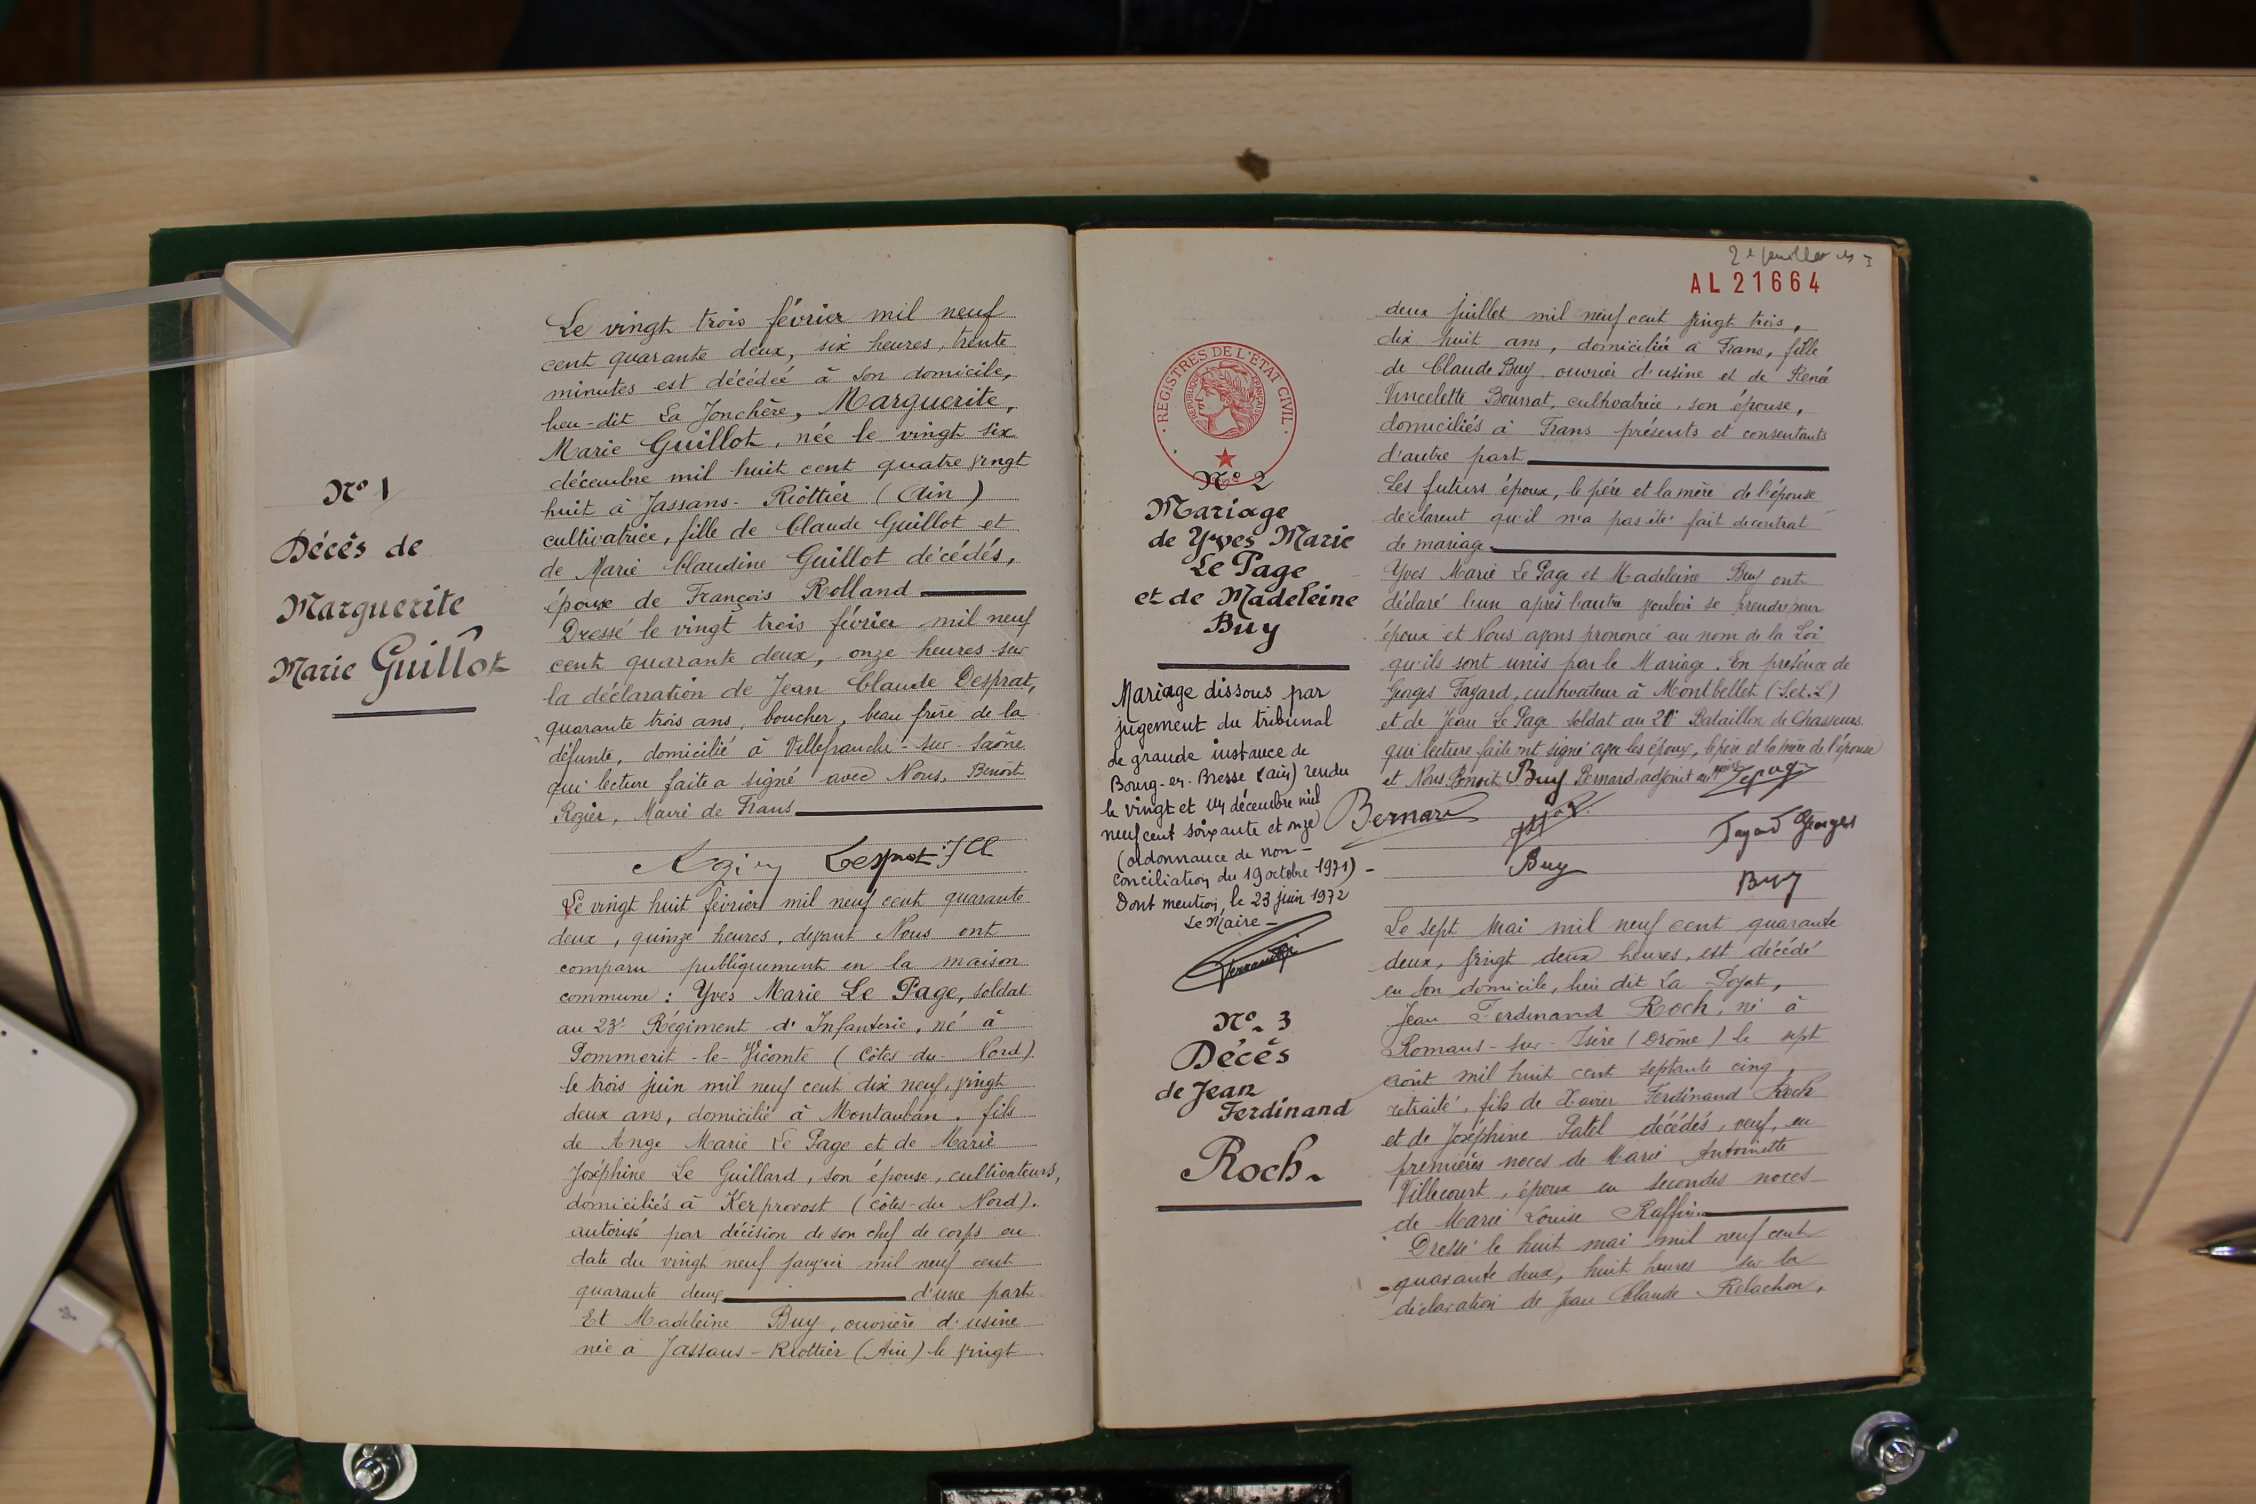 N° 1
Décès de
Marguerite
Marie Guillot
Le vingt trois février mil neuf
cent quarante deux, six heures, trente
minutes est décédée à son domicile,
lieu-dit La Jonchère, Marguerite,
Marie Guillot, née le vingt six
décembre mil huit cent quatre vingt
huit à Jassans-Riottier (Ain)
cultivatrice, fille de Claude Guillot et
de Marie Claudine Guillot décédés,
épouse de François Rolland
Dressé le vingt trois février mil neuf
cent quarante deux, onze heures sur
la déclaration de Jean Claude Desprat,
quarante trois ans, boucher, beau frère de la
défunte, domicilié à Villefranche-sur-Saône
qui lecture faite a signé avec Nous, Benoît
Rozier, Maire de Frans
Desprat J Cl
Le vingt huit février mil neuf cent quarante
deux, quinze heures, devant Nous ont
comparu publiquement en la maison
commune : Yves Marie Le Page, soldat
au 23e Régiment d'Infanterie, né à
Pommerit-le-Vicomte (Côtes-du-Nord)
le trois juin mil neuf cent dix neuf, vingt
deux ans, domicilié à Montauban, fils
de Ange Marie Le Page et de Marie
Joséphine Le Guillard, son épouse, cultivateurs,
domiciliés à Kerprovost (Côtes-du Nord).
autorisé par décision de son chef de corps en
date du vingt neuf janvier mil neuf cent
quarante deux d'une part
Et Madeleine Buy, ouvrière d'usine
née à Jassans-Riottier (Ain) le vingt
2e feuillet
AL 21664
REGISTRES DE L'ETAT CIVIL
REPUBLIQUE FRANCAISE
N° 2
Mariage
de Yves Marie
Le Page
et de Madeleine
Buy
Mariage dissous par
jugement du tribunal
de grande instance de
Bourg-en-Bresse (ain) rendu
le vingt et un décembre mil
neuf cent soixante et onze
(ordonnance de non-
conciliation du 19 octobre 1971)-
Dont mention, le 23 juin 1972
Le Maire -
N° 3
Décès
de Jean
Ferdinand
Roch
deux juillet mil neuf cent vingt trois,
dix huit ans, domiciliée à Frans, fille
de Claude Buy, ouvrier d'usine et de Renée
Vincelette Bourrat, cultivatrice, son épouse,
domiciliés à Frans présents et consentants
d'autre part
Les futurs époux, le père et la mère de l'épouse
déclarent qu'il n'a pas été fait de contrat
de mariage
Yves Marie Le Page et Madeleine Buy ont
déclaré l'un après l'autre vouloir se prendre pour
époux et Nous avons prononcé au nom de la Loi
qu'ils sont unis par le Mariage. En présence de
Georges Fayard, cultivateur à Montbellet (S.et.L)
et de Jean Le Page soldat au 2e Bataillon de Chasseurs
qui lecture faite ont signé avec les époux, le père et la mère de l'épouse
et Nous Benoit Buy Bernard, adjoint au Lepage
Bernard
Fayard Georges
Buy
Buy
Le sept mai mil neuf cent quarante
deux, vingt deux heures, est décédé
en son domicile, lieu dit La Poyat,
Jean Ferdinand Roch, né à
Romans-sur-Isère (Drôme) le sept
août mil huit cent septante cinq,
retraité, fils de Xavier Ferdinand Roch
et de Joséphine Patel décédés, veuf, en
premières noces de Marie Antoinette
Villecourt, époux en secondes noces
de Marie Louise Raffin
Dressé le huit mai mil neuf cent
quarante deux, huit heures sur la
déclaration de Jean Claude Relachon,